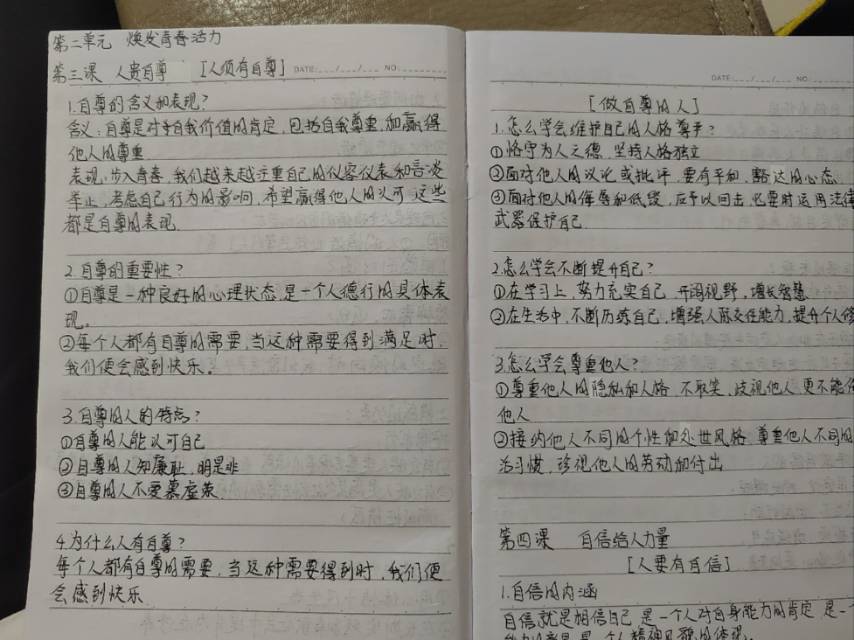 第二单元 焕发青春活力
第三课 人贵自尊 [人须有自尊] DATE: / / NO.
1.自尊的含义和表现?
含义:自尊是对自我价值的肯定,包括自我尊重和赢得
他人的尊重
表现:步入青春,我们越来越注重自己的仪容仪表和言谈
举止,考虑自己行为的影响,希望赢得他人的认可,这些
都是自尊的表现
2.自尊的重要性?
①自尊是一种良好的心理状态,是一个人德行的具体表
现。
②每个人都有自尊的需要,当这种需要得到满足时,
我们便会感到快乐。
3.自尊的人的特点?
①自尊的人能认可自己
②自尊的人知廉耻,明是非
③自尊的人不爱慕虚荣
4.为什么人有自尊?
每个人都有自尊的需要,当这种需要得到时,我们便
会感到快乐
DATE: / / NO.
[做自尊的人]
1.怎么学会维护自己的人格尊严?
①恪守为人之德,坚持人格独立
②面对他人的议论或批评,要有平和、豁达的心态
③面对他人的侮辱和低贬,应予以回击,必要时运用法律
武器保护自己
2.怎么学会不断提升自己?
①在学习上,努力充实自己,开阔视野,增长智慧
②在生活中,不断历练自己,增强人际交往能力,提升个人修
3.怎么学会尊重他人?
①尊重他人的隐私和人格,不取笑、歧视他人,更不能
他人
②接纳他人不同的个性和处世风格,尊重他人不同的
活习惯,珍视他人的劳动和付出
第四课 自信给人力量
[人要有自信]
1.自信的内涵
自信就是相信自己,是一个人对自身能力的肯定,是一